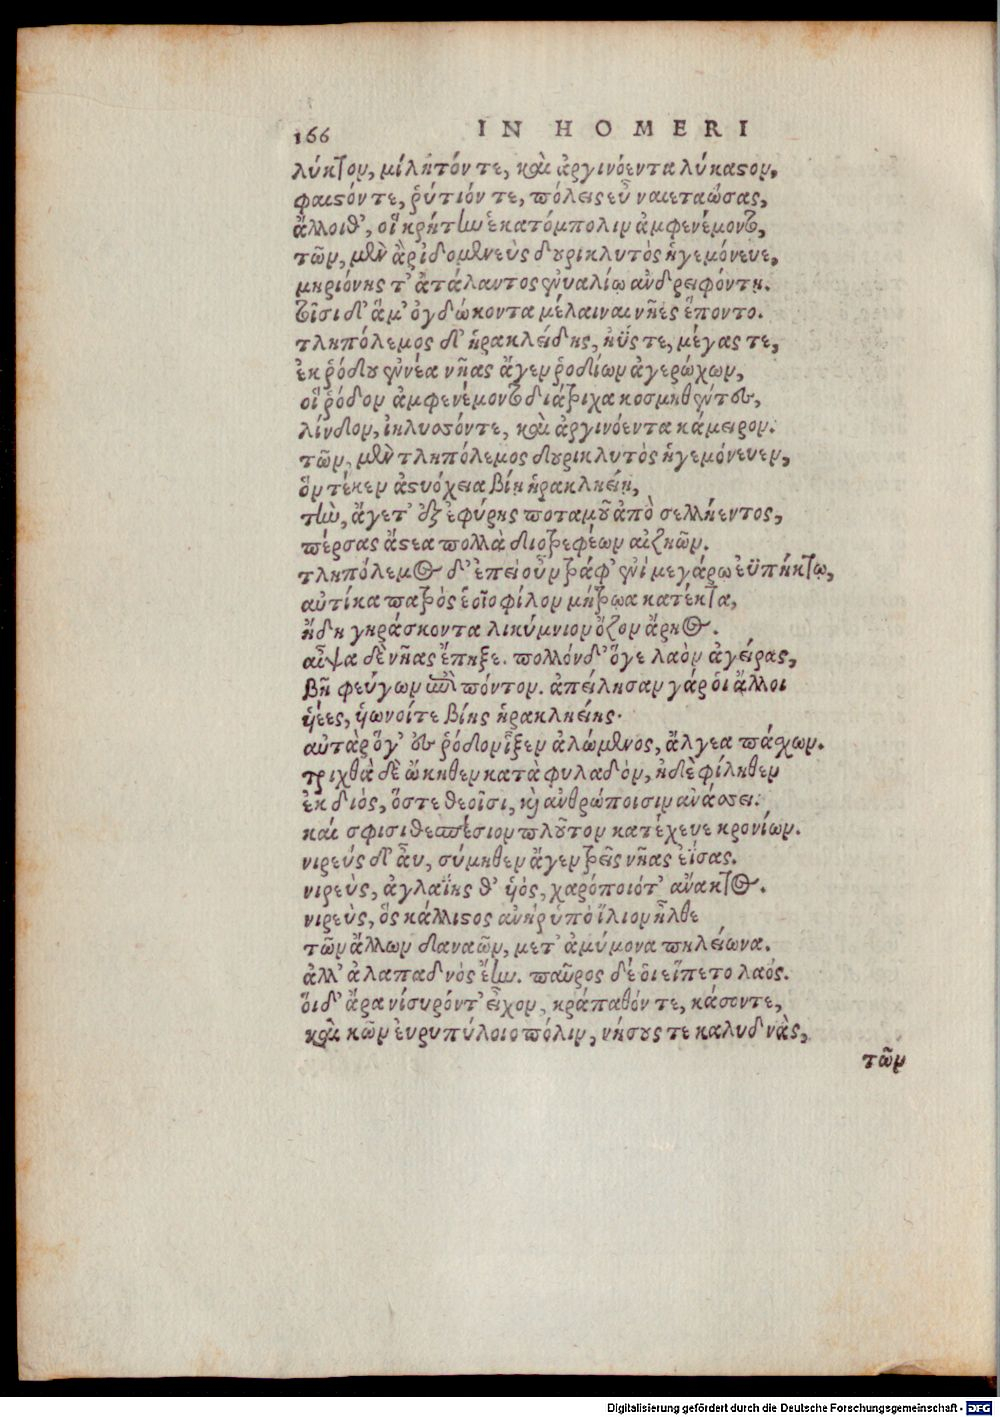 166 IN HOMERI
λύκτον, μίλητόν τε, καὶ ἀργινόεντα λύκαστον,
φαιστόν τε, ῥύτιόν τε, πόλεις εὖ ναιεταώσας,
ἄλλοι θ', οἳ κρήτην ἑκατόμπολιν ἀμφενέμοντο,
τῶν, μὲν ἂρ ἰδομενεὺς δουρικλυτὸς ἡγεμόνευε,
μηριόνης τ' ἀτάλαντος ἐνυαλίῳ ἀνδρειφόντῃ.
τοῖσι δ' ἅμ' ὀγδώκοντα μέλαιναι νῆες ἕποντο.
τληπόλεμος δ' ἡρακλείδης, ἠΰς τε, μέγας τε,
ἐκ ῥόδου ἐννέα νῆας ἄγεν ῥοδίων ἀγερώχων,
οἳ ῥόδον ἀμφενέμοντο διάτριχα κοσμηθέντες,
λίνδον, ἰηλυσόντε, καὶ ἀργινόεντα κάμειρον.
τῶν, μὲν τληπόλεμος δουρικλυτὸς ἡγεμόνευεν,
ὃν τέκεν ἀστυόχεια βίῃ ἡρακληείῃ,
τὴν, ἄγετ' ἐξ ἐφύρης ποταμοῦ ἀπὸ σελλήεντος,
πέρσας ἄστεα πολλὰ διοτρεφέων αἰζηῶν.
τληπόλεμος δ' ἐπεὶ οὖν τράφ' ἐνὶ μεγάρῳ ἐϋπήκτῳ,
αὐτίκα πατρὸς ἑοῖο φίλον μήτρωα κατέκτα,
ἤδη γηράσκοντα λικύμνιον ὄζον ἄρηος.
αἶψα δὲ νῆας ἔπηξε. πολλὸνδ' ὅγε λαὸν ἀγείρας,
βῆ φεύγων ἐπὶ πόντον. ἀπείλησαν γάρ οἱ ἄλλοι
υἱέες, υἱωνοίτε βίης ἡρακληείης.
αὐτὰρ ὅγ' ἐς ῥόδον ἷξεν ἀλώμενος, ἄλγεα πάσχων.
τριχθὰ δὲ ᾤκηθεν κατὰ φυλαδὸν, ἠδὲ φίληθεν
ἐκ διὸς, ὅστε θεοῖσι, καὶ ἀνθρώποισιν ἀνάσσει.
καί σφισι θεσπέσιον πλοῦτον κατέχευε κρονίων.
νιρεύς δ' αὖ, σύμηθεν ἄγεν τρεῖς νῆας ἐΐσας.
νιρεὺς, ἀγλαΐης θ' υἱός, χαρόποιότ' ἄνακτος.
νιρεὺς, ὃς κάλλιστος ἀνὴρ ὑπὸ ἴλιον ἦλθε
τῶν ἄλλων δαναῶν, μετ' ἀμύμονα πηλείωνα.
ἀλλ' ἀλαπαδνὸς ἔην. παῦρος δέ οἱ εἵπετο λαός.
οἵδ' ἄρα νίσυρόντ' εἶχον, κράπαθόν τε, κάσοντε,
καὶ κῶν εὐρυπύλοιο πόλιν, νήσους τε καλυδνὰς,
τῶν
Digitalisierung gefördert durch die Deutsche Forschungsgemeinschaft - DFG